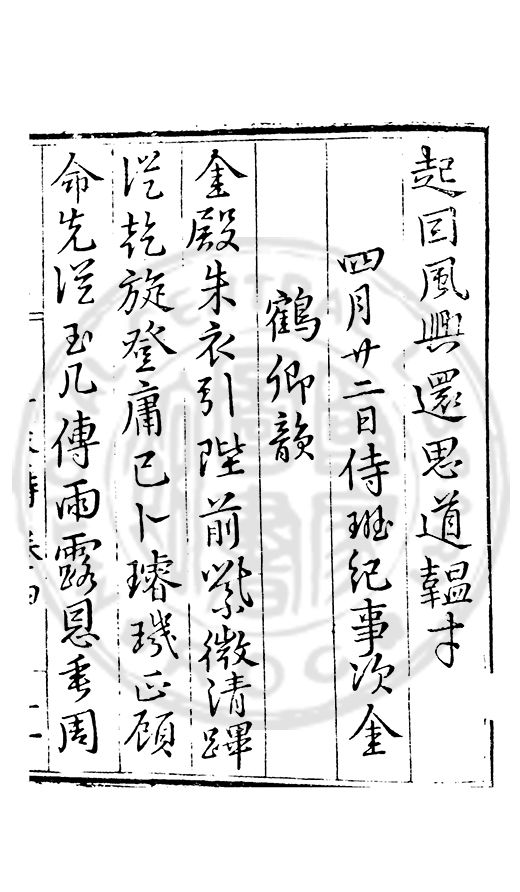 起回風興還思道韞才
四月廿二日侍班紀事次金
鶴卿韻
金殿朱衣引陛前紫微清蹕
從乾旋登庸已卜璿璣正顧
命先從玉几傳雨露恩垂周